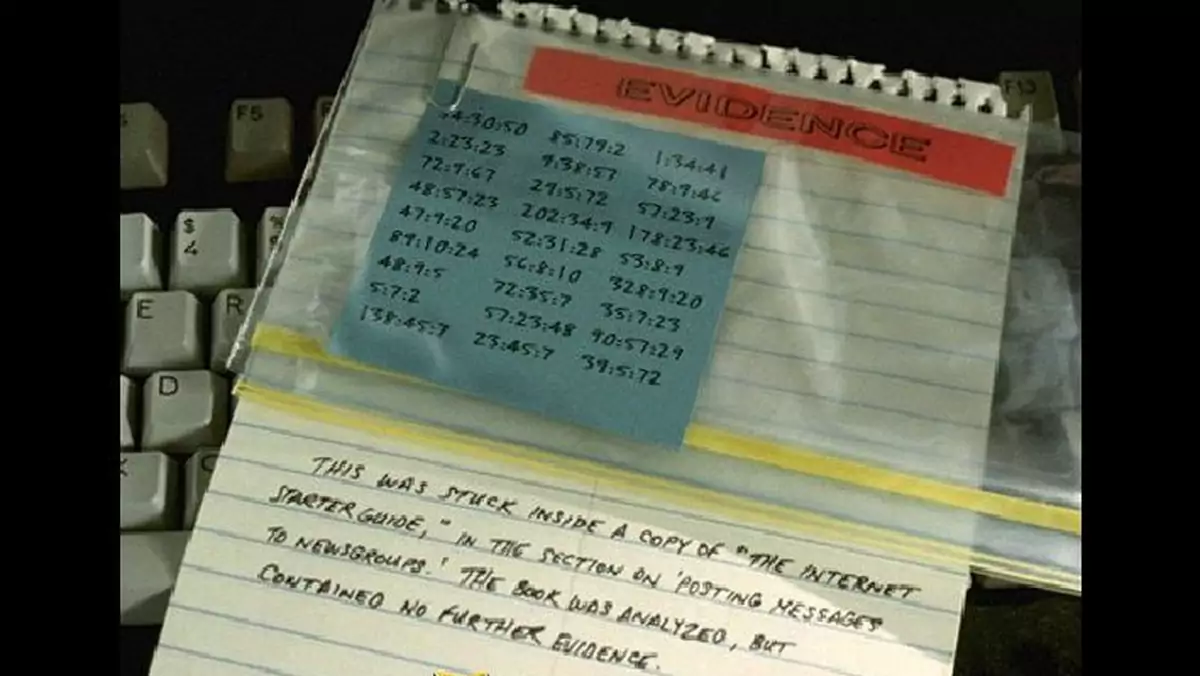 F5
F13
EVIDENCE
4:30:50 85:79:2 1:34:41
2:23:23 9:38:57 78:9:46
72:9:67 29:5:72 57:23:9
48:57:23 202:34:9 178:23:46
47:9:20 52:31:28 53:8:9
89:10:24 56:8:10 328:9:20
48:9:5 72:35:7 35:7:23
5:7:2 57:23:48 90:57:29
138:45:7 23:45:7 39:5:72
$
4
%
E
R
D
X
C
THIS WAS STUCK INSIDE A COPY OF "THE INTERNET
STARTER GUIDE," IN THE SECTION ON 'POSTING MESSAGES
TO NEWSGROUPS.' THE BOOK WAS ANALYZED, BUT
CONTAINED NO FURTHER EVIDENCE.